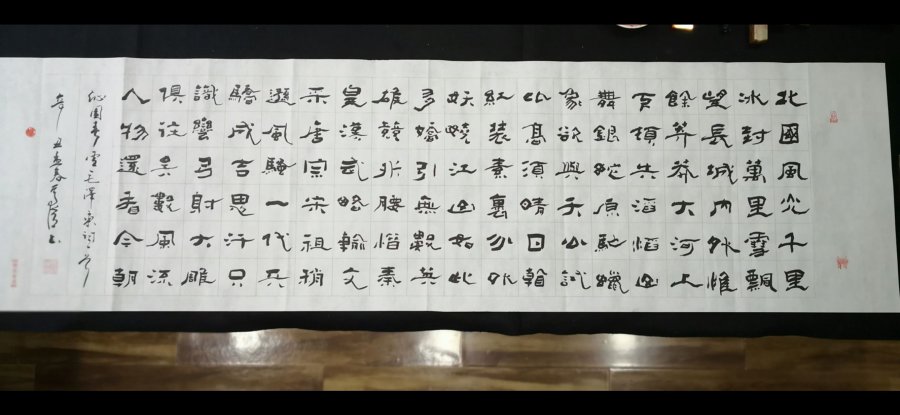 北國風光千里
冰封萬里雪飄
望長城内外惟
餘莽莽大河上
下頓失滔滔山
舞銀蛇原馳蠟
象欲與天公試
比高須晴日看
紅裝素裹分外
妖嬈江山如此
多嬌引無數英
雄競折腰惜秦
皇漢武略輸文
采唐宗宋祖稍
遜風騷一代天
驕成吉思汗只
識彎弓射大雕
俱往矣數風流
人物還看今朝
沁園春雪毛澤東詞一首
辛丑孟春